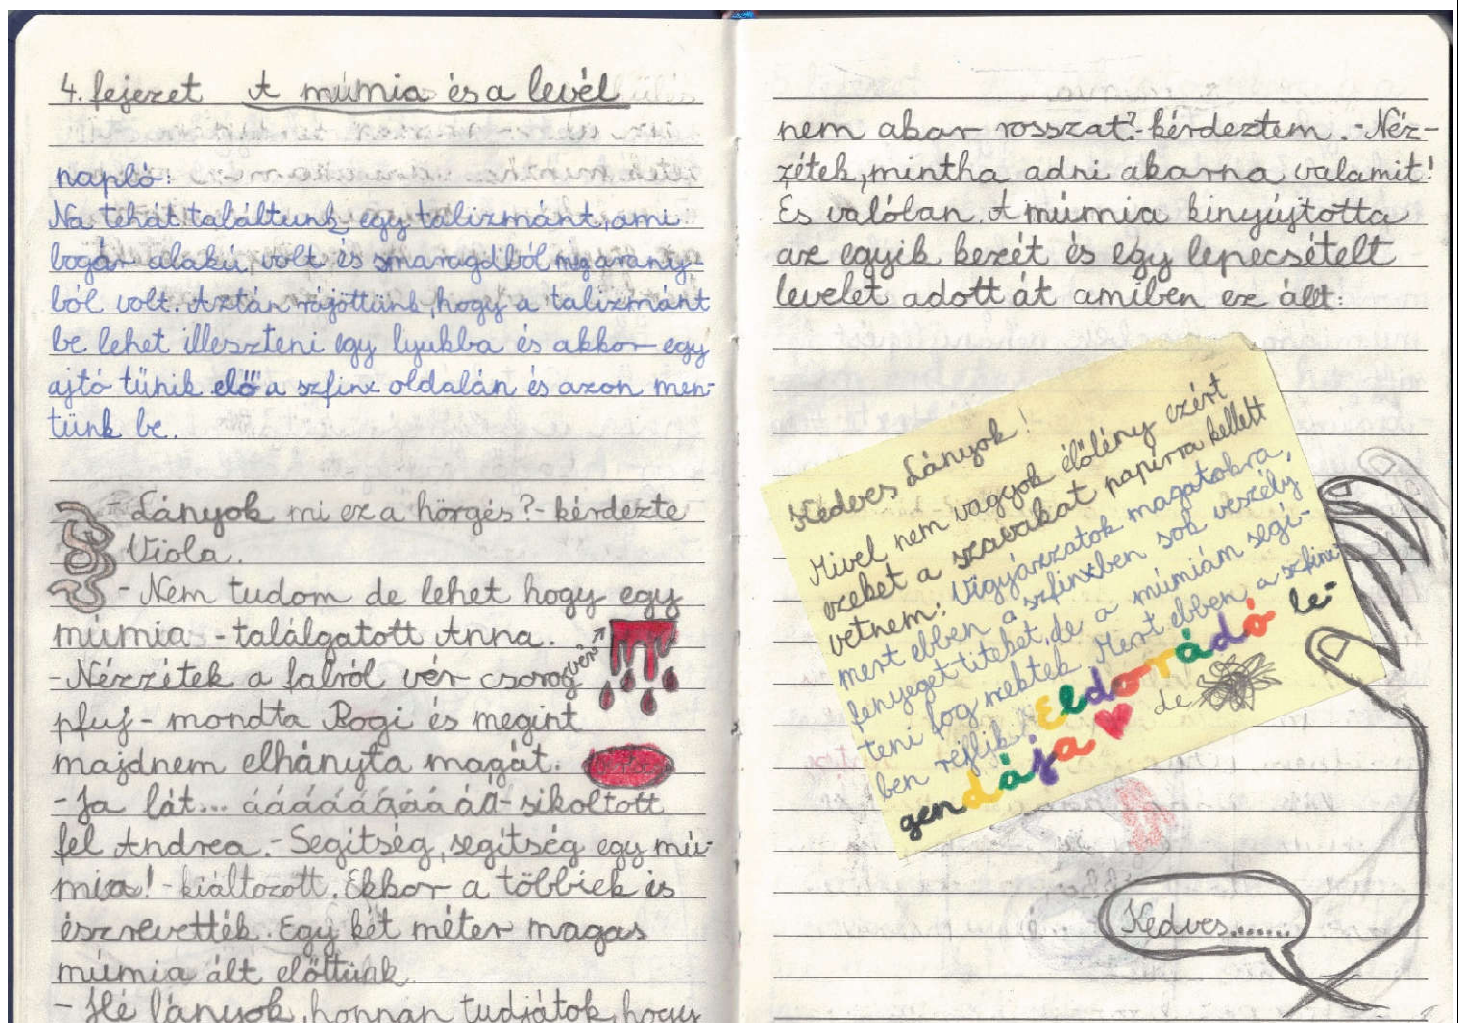 4. fejezet A múmia és a levél
napló:
Na tehát találtunk egy talizmánt, ami
bogár alakú volt és smaragdból meg arany-
ból volt. Aztán rájöttünk, hogy a talizmánt
be lehet illeszteni egy lyukba és akkor egy
ajtó tűnik elő a szfinx oldalán és azon men-
tünk be.
Lányok mi ez a hörgés?- kérdezte
Viola.
- Nem tudom de lehet hogy egy
múmia - találgatott Anna.
- Nézzétek a falról vér csorog
vér
pfuj - mondta Rogi és megint
majdnem elhányta magát.
- Ja lát... áááááááááá - sikoltott
fel Andrea. - Segítség, segítség egy mú-
mia! - kiáltozott. Ekkor a többiek is
észrevették. Egy két méter magas
múmia ált előttünk.
- Hé lányok, honnan tudjátok, hogy
nem akar rosszat?- kérdeztem. - Néz-
zétek, mintha adni akarna valamit!
És valólan. A múmia kinyújtotta
az egyik kezét és egy lepecsételt
levelet adott át amiben ez állt:
Kedves Lányok!
Mivel nem vagyok élőlény ezért
ezeket a szavakat papírra kellett
vetnem: Vigyázzatok magatokra,
mert ebben a szfinxben sok veszély
fenyeget titeket, de a múmiám segí-
teni fog nektek. Mert ebben a szfinx-
ben réjlik: Eldorádó le-
de
gendája
Kedves.......